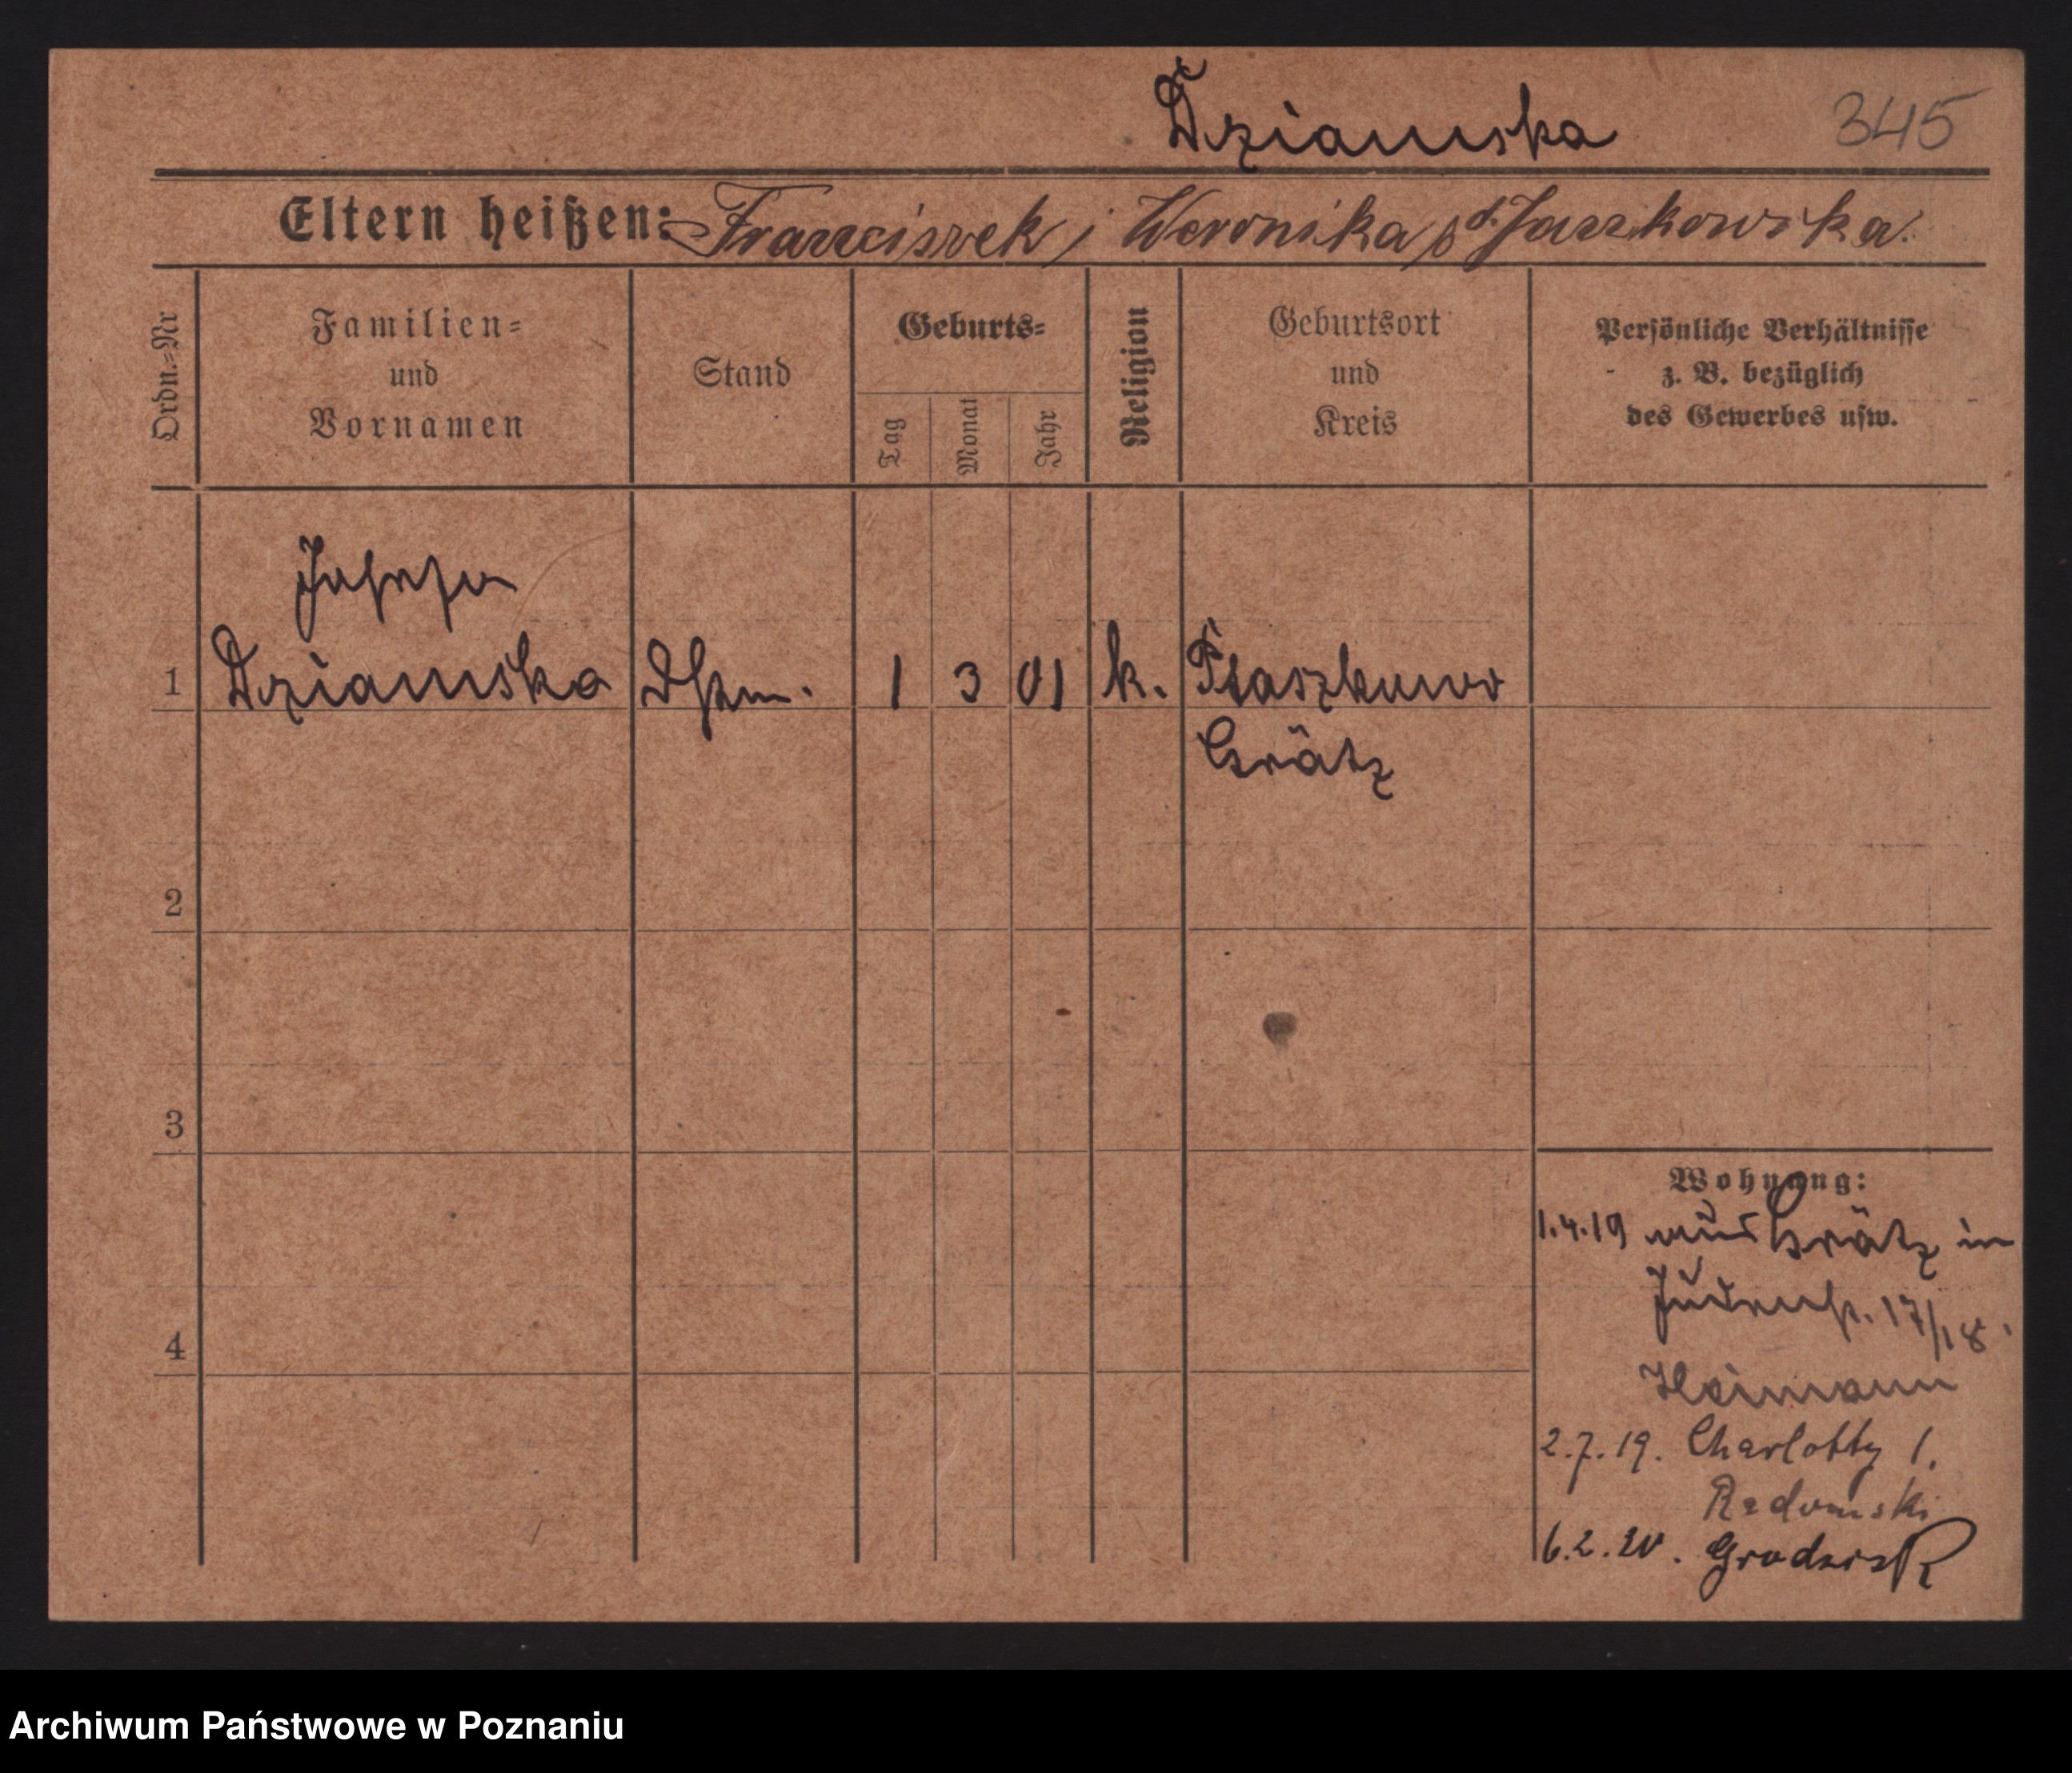 Dziamska 345
Eltern heißen: Franciszek i Weronika pd. Jaszkowska.
Ordn.=Nr
Familien=
und
Vornamen
Stand
Geburts=
Tag
Monat
Jahr
Religion
Geburtsort
und
Kreis
Persönliche Verhältnisse
z. B. bezüglich
des Gewerbes usw.
Josefa
1 Dziamska Dstm. 1 3 01 k. Ptaszkowo
Grätz
2
3
4
Wohnung:
1.4.19 aus Grätz in
Judenstr. 17/18.
Heimann
2.7.19. Charlottstr 1.
Radomski
6.2.20. Grodzisk
Archiwum Państwowe w Poznaniu